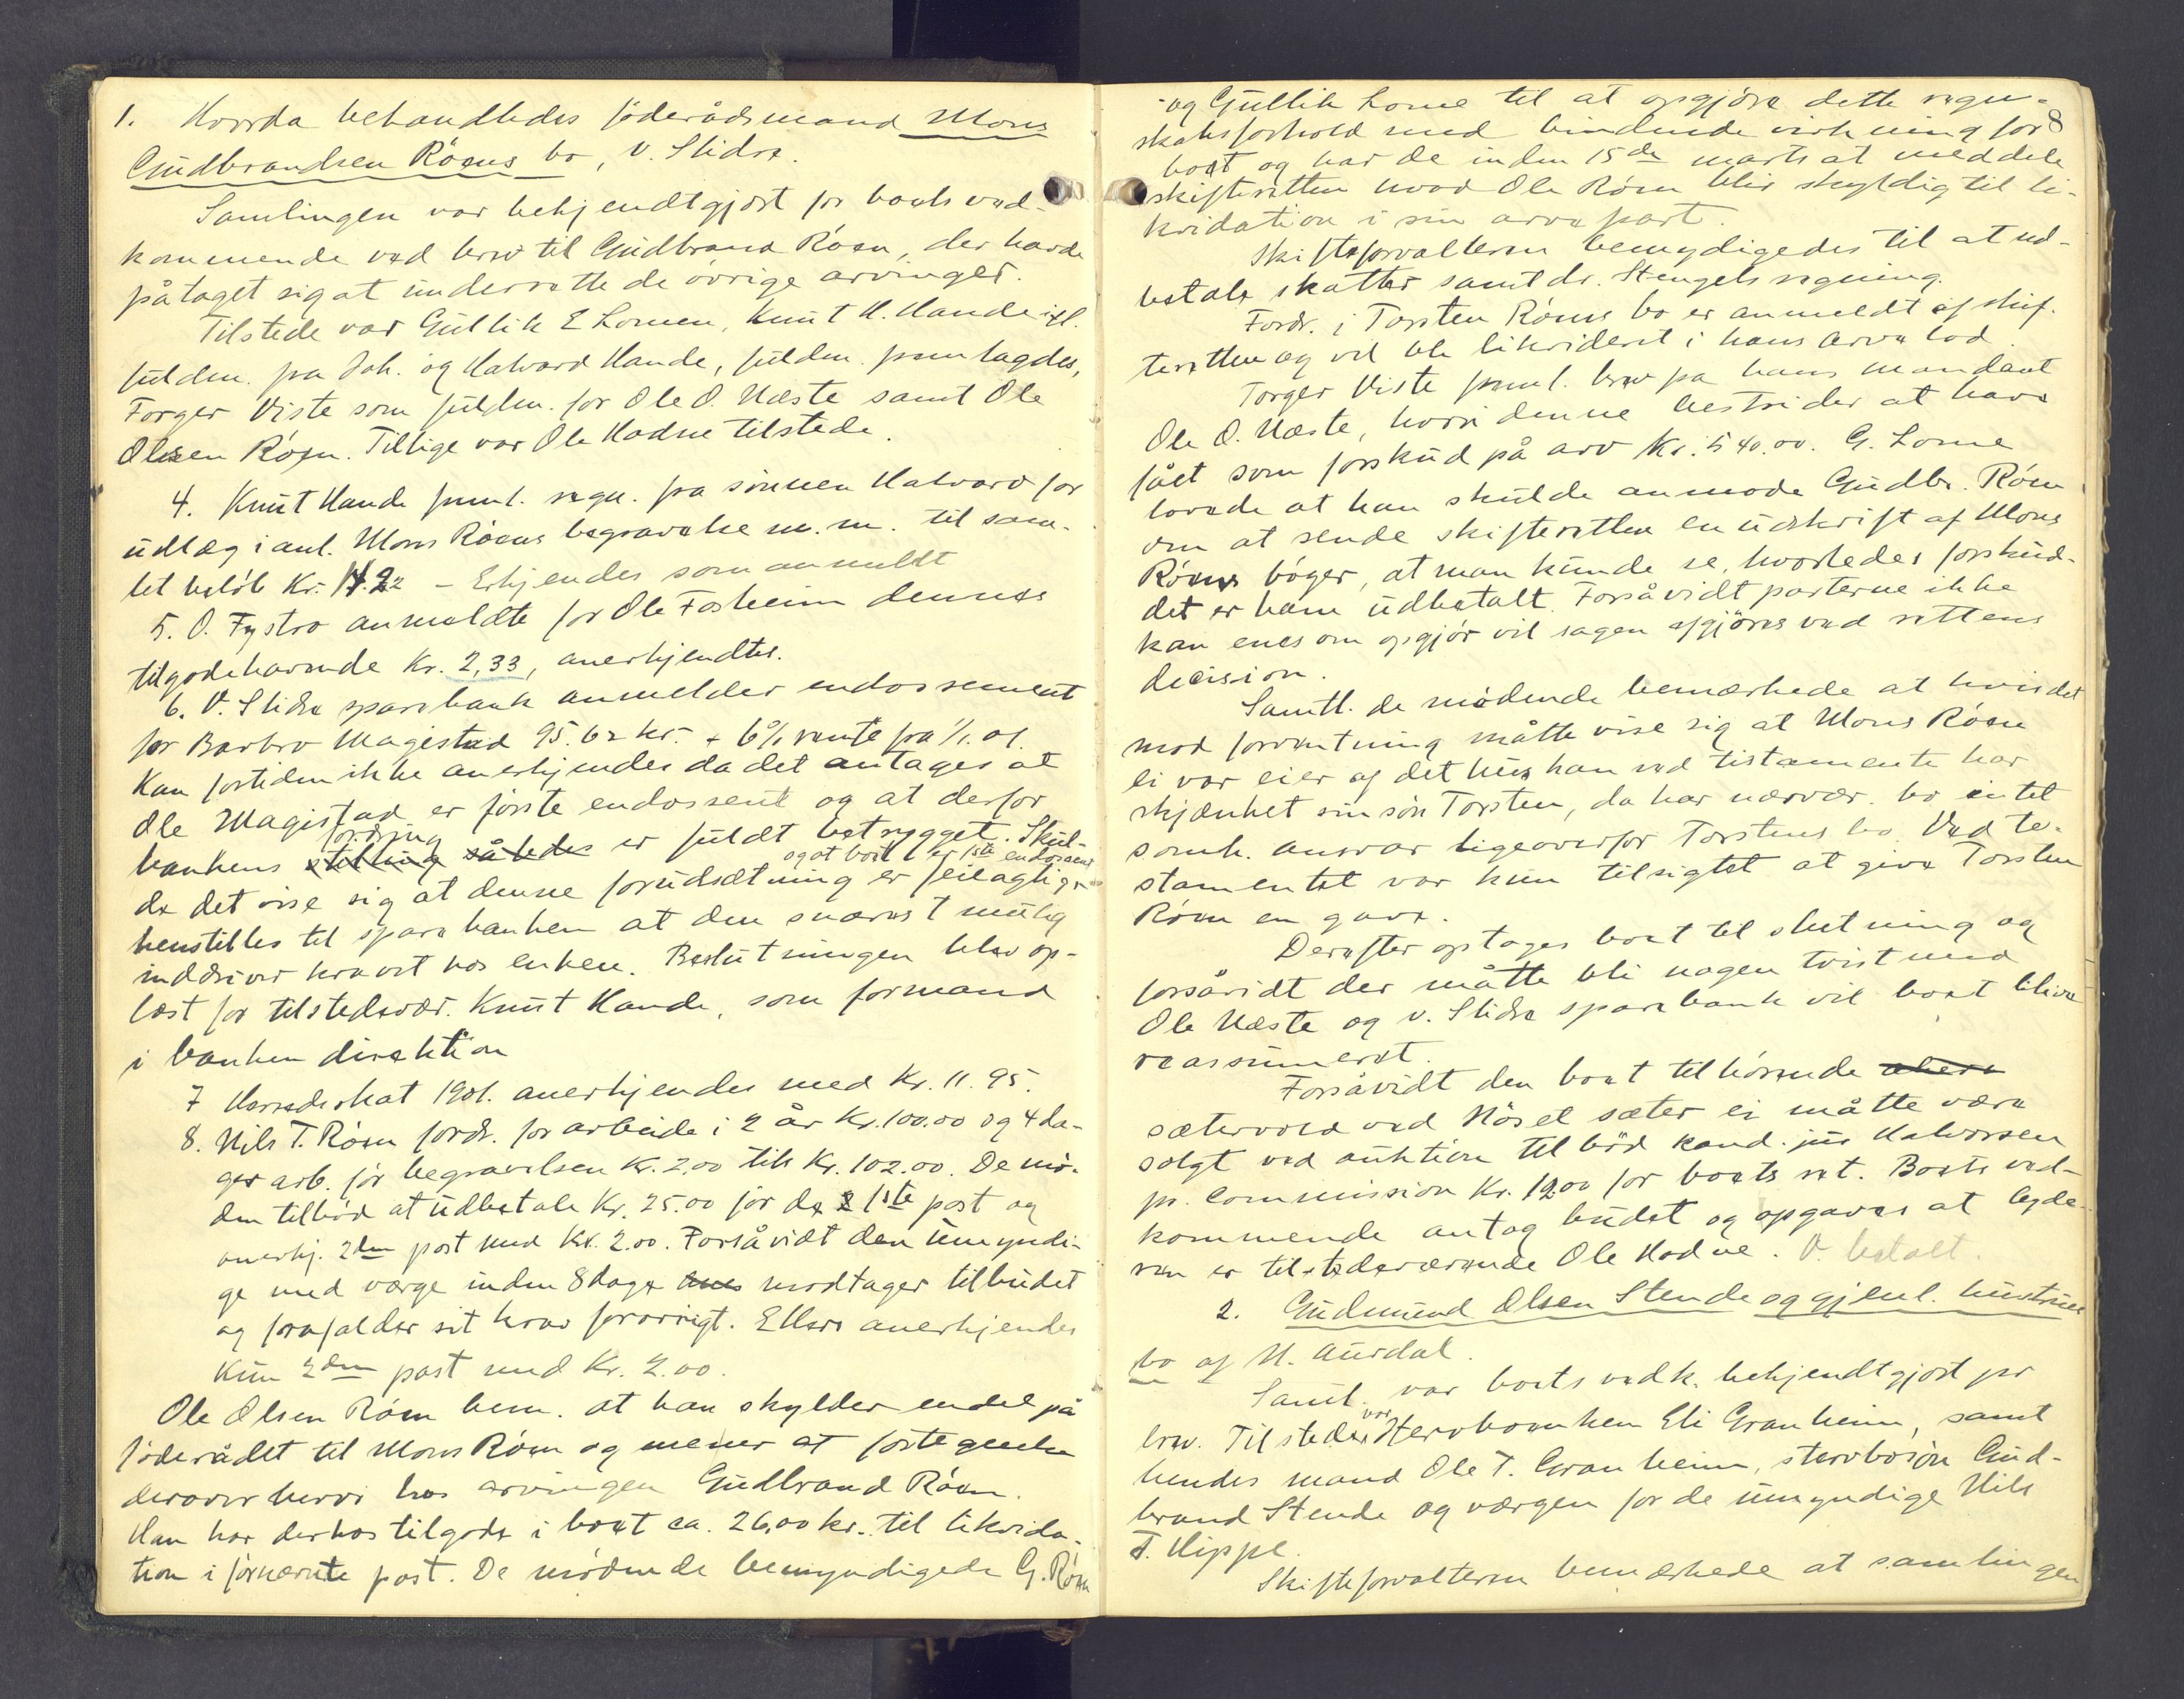 1. Hvorda behandledes föderådsmand Mons
Gudbrandsen Röens bo, V. Slidre.
Samlingen var bekjendtgjort for boets ved-
kommende ved brev til Gudbrand Röen, der havde
påtaget sig at underrette de övrige arvinger.
Tilstede var Gullik E Lomen, Knut H. Hande ifl.
fuldm. fra Joh. og Halvard Hande, fuldm. freml agdes,
Torger Viste som fuldm. for Ole O. Næste samt Ole
Olsen Röen. Tillige var Ole Hadne tilstede.
4. Knut Hande freml. regn. fra sönnen Halvard for
udlæg i anl. Mons Röens begravelse m. m. til sam-
let belöb Kr. 14.22 – Erkjendes som anmeldt
5. O. Fystro anmeldte for Ole Fosheim dennes
tilgodehavende Kr. 2,33, anerkjendtes.
6. V. Slidre sparebank anmelder endossement
for Barbro Magistad 95.62 kr. + 6% rente fra 1/1. 01.
Kan fortiden ikke anerkjendes da det antages at
Ole Magistad er förste endossent og at derfor
fordring
bankens stilling således er fuldt betrygget. Skul-
og at boet er 1ste endossent
de det vise sig at denne forudsætning er feilagtig
henstilles til sparebanken at den snarest mulig
inddriver kravet hos enken. Beslutningen blev op-
læst for tilstedevær. Knut Hande, som formand
i banken direktion
7 Herredsskat 1901. anerkjendes med Kr. 11.95.
8. Nils T. Röen fordr. for arbeide i 2 år Kr. 100.00 og 4 da-
ger arb. för begravelsen Kr. 2.00 tils Kr. 102.00. De mö-
den tilböd at udbetale Kr. 25.00 for de 2 1ste post og
anerkj. 2den post med Kr. 2.00. Forsåvidt den umyndi-
ge med værge inden 8 dage modtager tilbudet
og frafalder sit krav forövrigt. Ellers anerkjendes
kun 2den post med Kr. 2.00.
Ole Olsen Röen bem. at han skylder endel på
föderådet til Mons Röen og mener at fortegnelse
derover beror hos arvingen Gudbrand Röen.
Han har derhos tilgode i boet ca. 26,00 kr. til likvida-
tion i förnævnte post. De mödende bemyndigede G. Röen
8
og Gullik Lome til at opgjöre dette regn-
skabsforhold med bindende virkning for
boet og har de inden 15de marts at meddele
skifteretten hvad Ole Röen blir skyldig til li-
kvidation i sin arvepart.
Skifteforvalteren bemyndigedes til at ud-
betale skatter samt dr. Stengels regning.
Fordr. i Torsten Röens bo er anmeldt af skif-
teretten og vil bli likvideret i hans arvelod.
Torger Viste freml. brev fra hans mandant
Ole O. Næste, hvori denne bestrider at have
fået som forskud på arv Kr. 540.00. G. Lome
lovede at han skulde anmode Gudbr. Röen
om at sende skifteretten en udskrift af Mons
Röens böger, at man kunde se, hvorledes forskud-
det er ham udbetalt. Forsåvidt parterne ikke
kan enes om opgjör vil sagen afgjöres ved rettens
decision.
Samtl. de mödende bemærkede at hvis det
mod forventning måtte vise sig at Mons Röen
ei var eier af det hus han ved testamente har
skjænket sin sön Torsten, da har nærvær. bo intet
somh. ansvar ligeoverfor Torstens bo. Ved te-
stamentet var kun tilsigtet at give Torsten
Röen en gave.
Derefter optages boet til slutning og
forsåvidt der måtte bli nogen tvist med
Ole Næste og v. Slidre sparebank vil boet blive
reassumeret.
Forsåvidt den boet tilhörende
sætervold ved Nösel sæter ei måtte være
solgt ved auktion tilböd kand. jur Halvorsen
pr. commission Kr. 12.00 for boets ret. Boets ved-
kommende antog budet og opgaves at byde-
ren er tilstedeværende Ole Hadne. V. betalt.
2. Gudmund Olsen Stende og gjenl. hustrues
bo af N. Aurdal.
Saml. var boets vedk. bekjendtgjort pr
brev. Tilstede var stervboenken Eli Granheim, samt
hendes mand Ole T. Granheim, stervbosön Gud-
brand Stende og værgen for de umyndige Nils
T. Hippe.
Skifteforvalteren bemærkede at samlingen